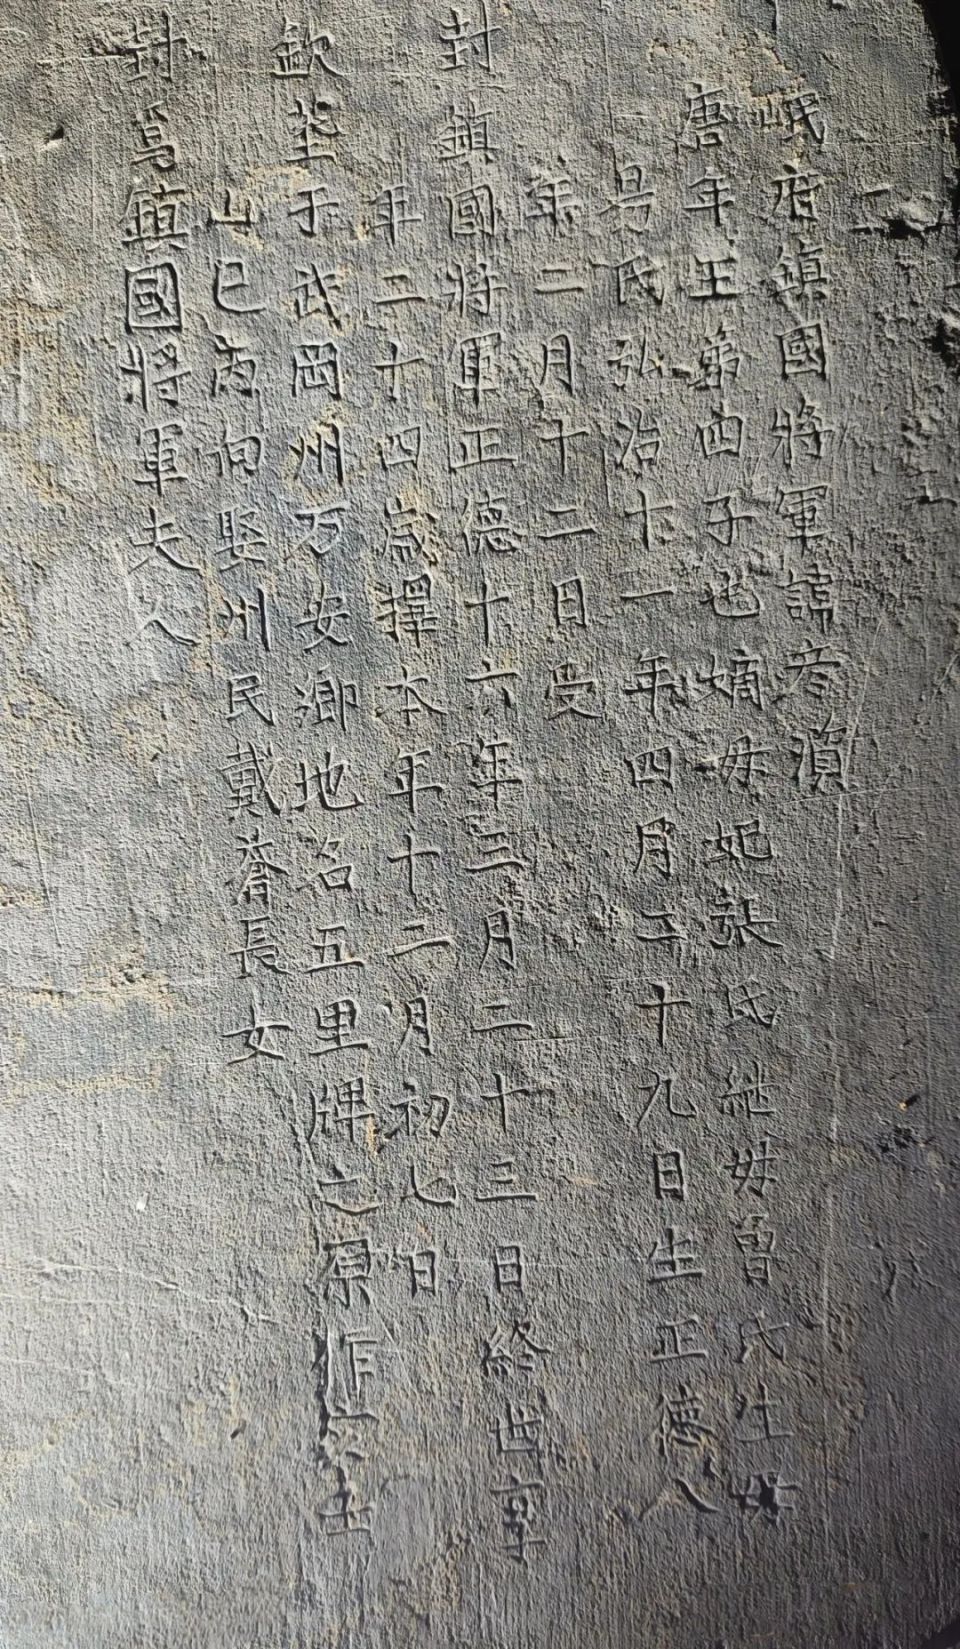 岷府鎮國將軍諱彦湏
唐年王第四子也嫡母妃張氏継母曾氏生母
昜氏弘治十一年四月二十九日生正德八
年二月十二日受
封鎮國将軍正德十六年三月二十三日終世享
年二十四歲擇本年十二月初七日
欽塟于武岡州万安鄉地名五里牌之原作穴壬
山巳丙向娶州民戴薈長女
封爲鎮國將軍夫人